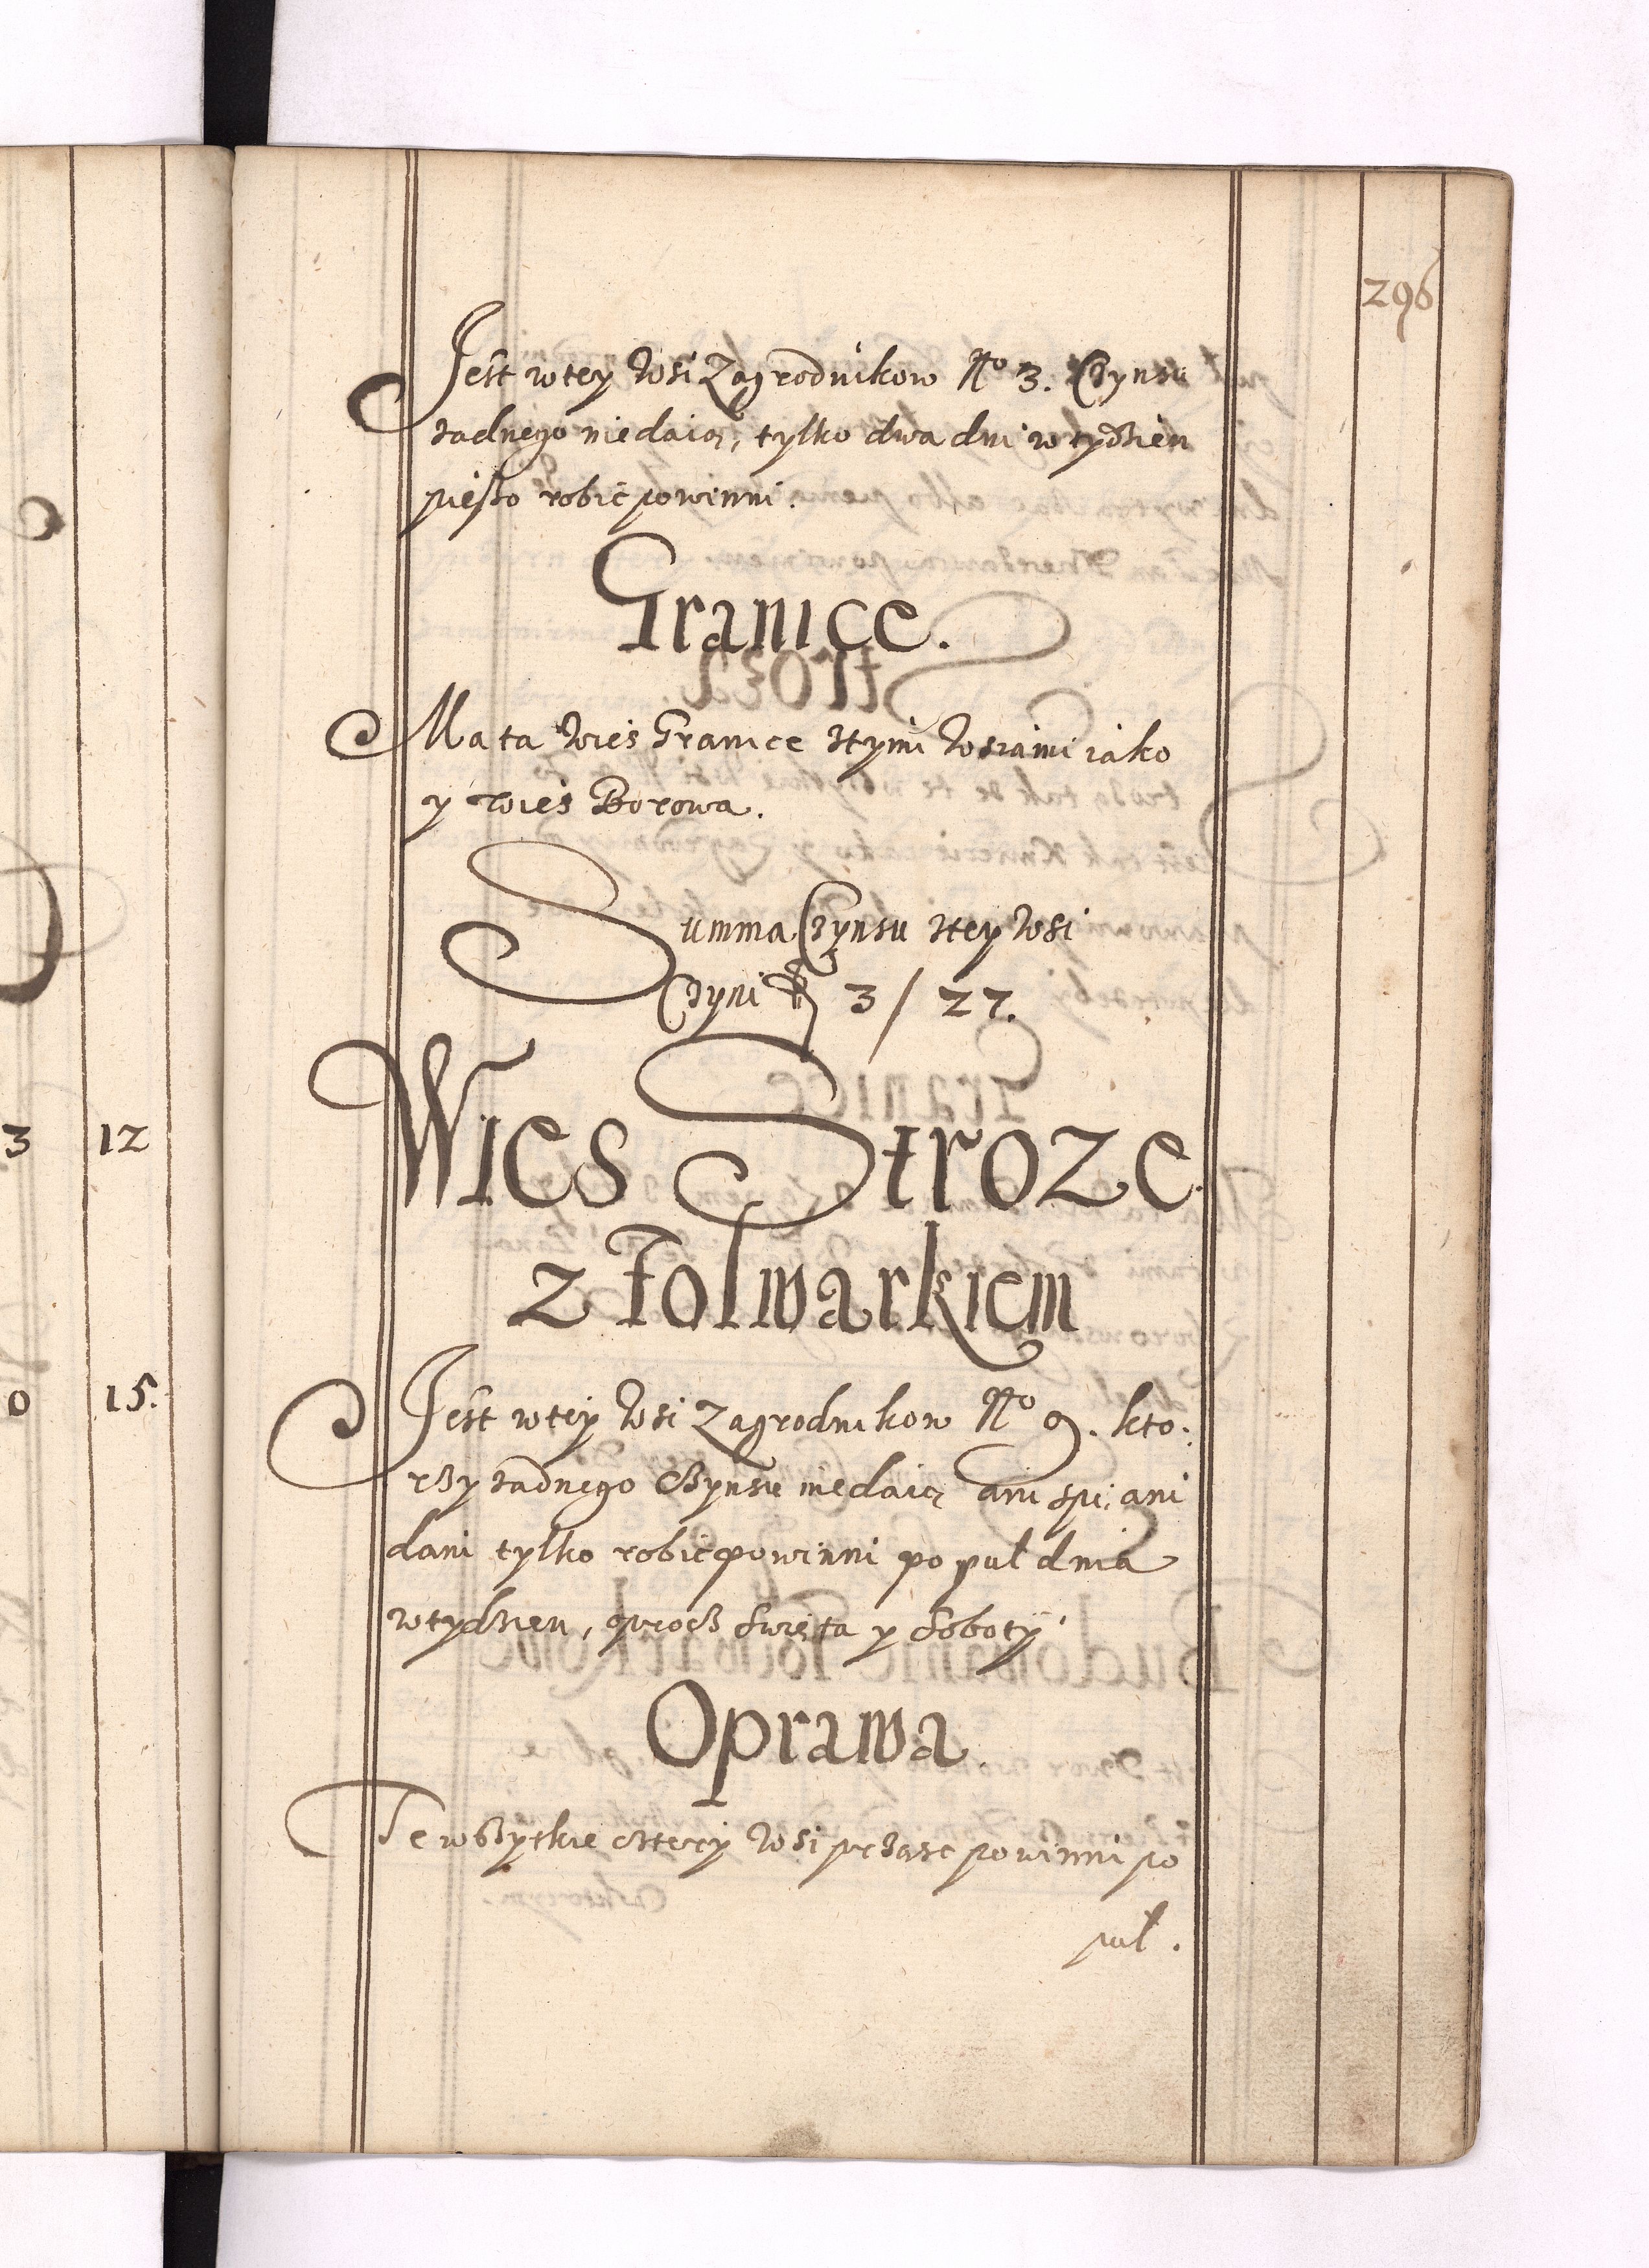 296
Jest w tey Wsi Zagrodnikow No 3. Czynsu
żadnego niedaią, tylko dwa dni w tydzien
pieszo robić powinni.
Granice.
Ma ta Wieś Granice ztymi Wsiami iako
y Wieś Borowa.
Summa Czynsu ztey Wsi
Czyni 3/ 27.
Wies Stroze
z Folwarkiem
Jest w tey Wsi Zagrodnikow No 9. kto:
rzy żadnego Czynsu niedaią ani spi: ani
dani tylko robić powinni po puł dnia
w tydzien, oprocz Swięta y Soboty
Oprawa
Te wszytkie cztery Wsi prząsc powinni po
puł.
3 12
0 15.